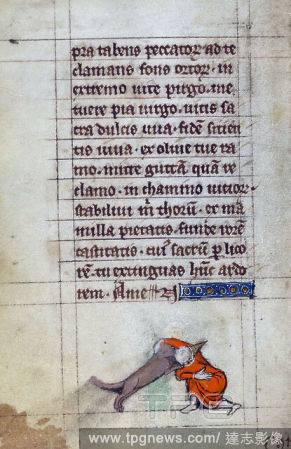 pra tabens peccatoꝝ ad te
clamans fons ortoꝝ · in
extremo uite purgo · me
tuere pia uirgo · uitis sa
cra dulcis uua · fidē sitien
tis iuua · ex oliue tue ra
mo · mitte guttā quā re
clamo · in chamino uitioꝝ
stabiliui m̄ thoꝝ · ex ma
milla pietatis · funde
castitatis · cui᷒ sacrū ꝑ lico
rē · tu extinguas hūc ardo
rem · Ame
www.tpgnews.com/ 達志影像